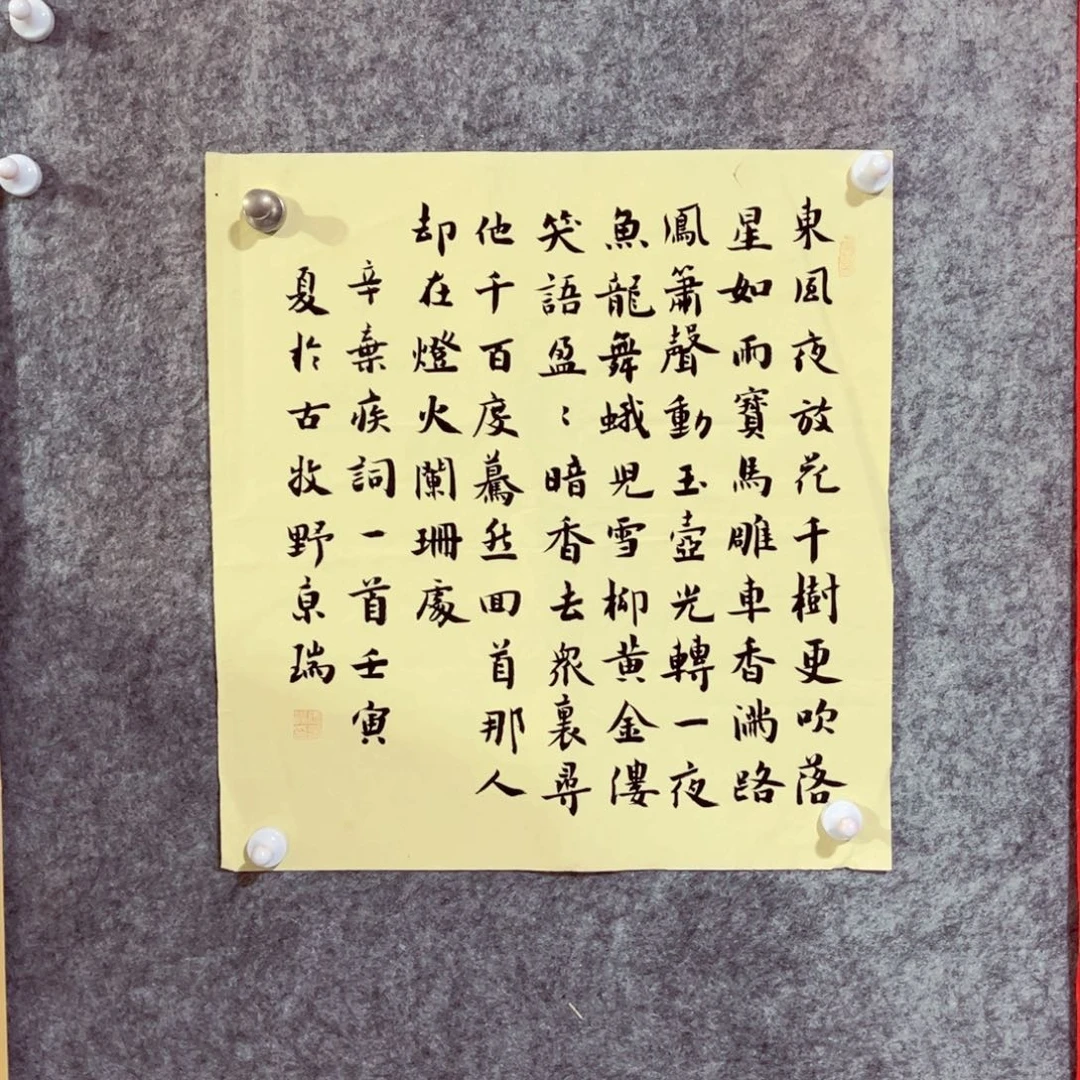 東風夜放花千樹更吹落
星如雨寶馬雕車香滿路
鳳簫聲動玉壺光轉一夜
魚龍舞蛾兒雪柳黃金縷
笑語盈〻暗香去衆裏尋
他千百度驀然回首那人
却在燈火闌珊處
辛棄疾詞一首壬寅
夏於古牧野京瑞